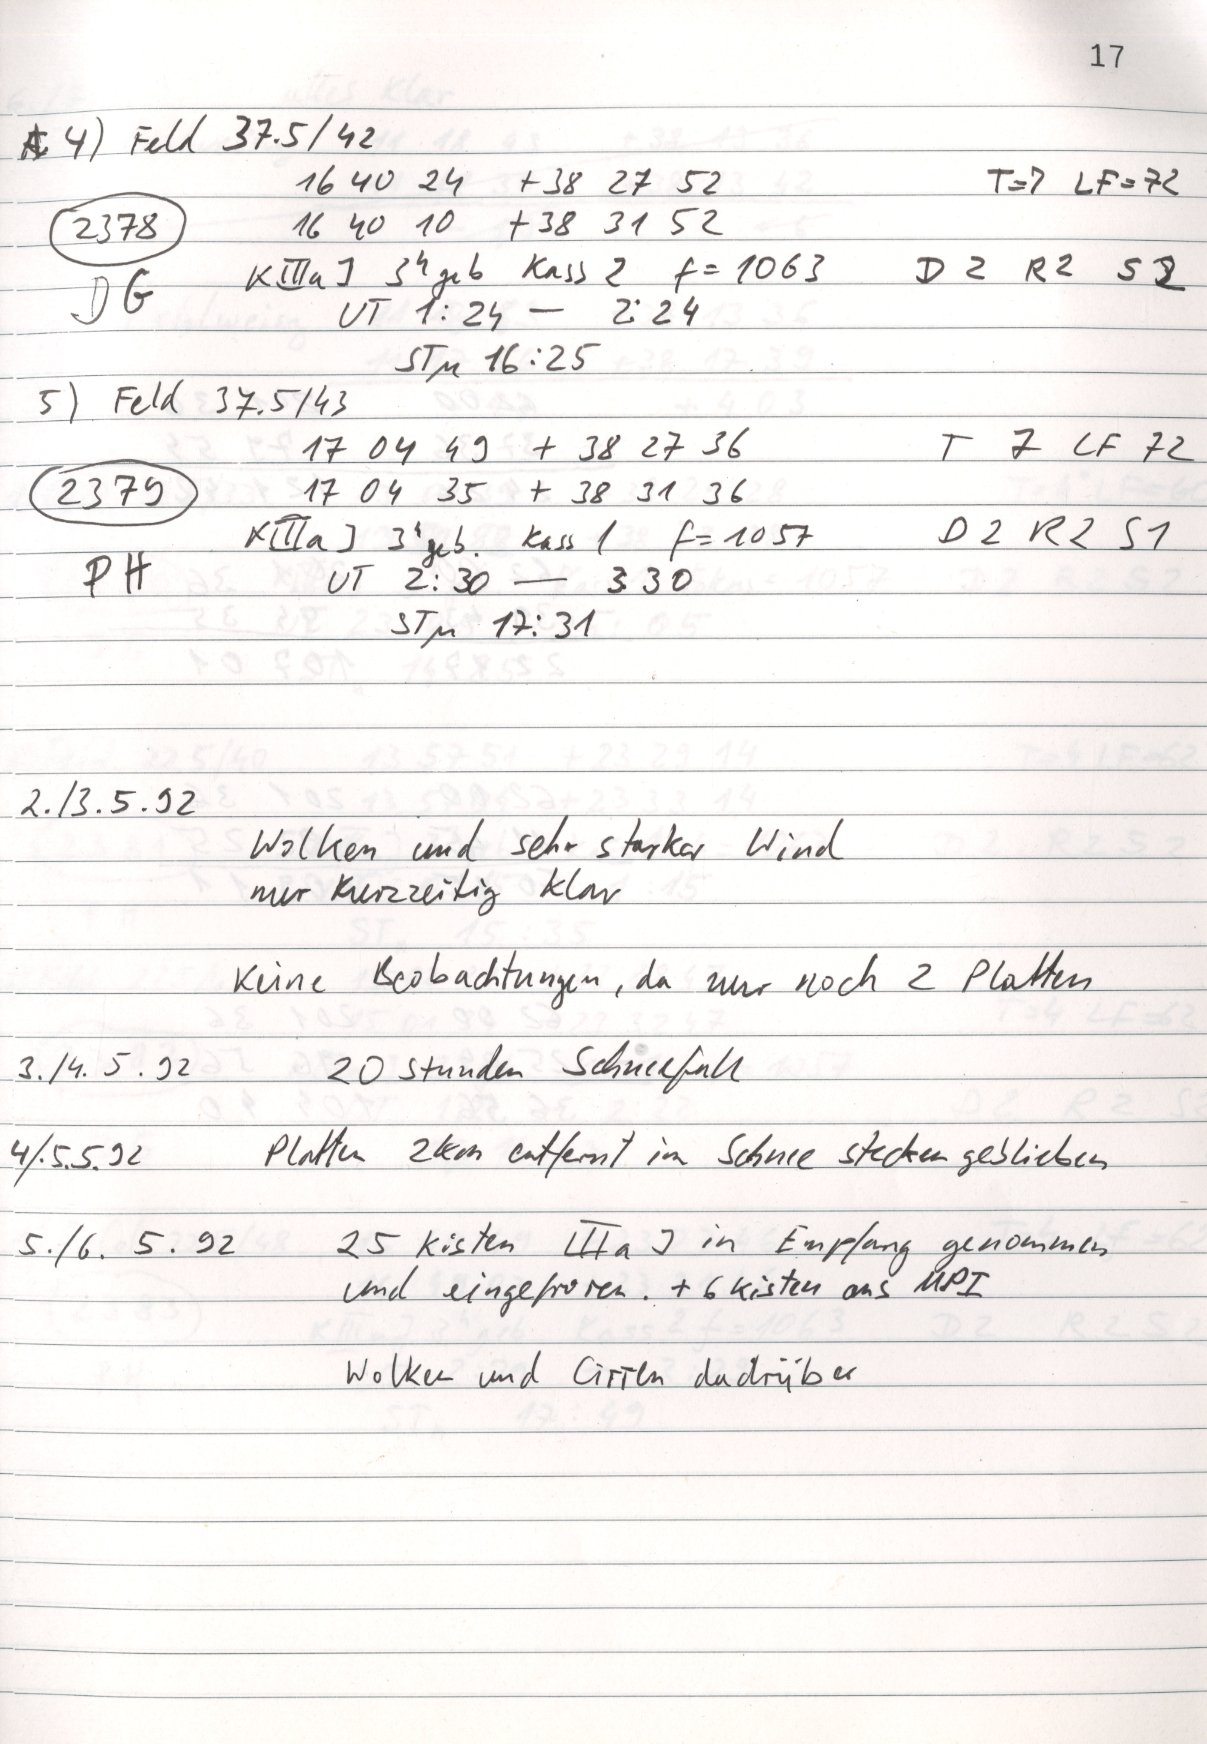 17
4) Feld 37.5/42
16 40 24 +38 27 52 T=7 LF=72
2378 16 40 10 +38 31 52
KIIIaJ 3h geb Kass 2 f=1063 D2 R2 S2
DG UT 1:24 — 2:24
STM 16:25
5) Feld 37.5/43
17 04 49 +38 27 36 T 7 LF 72
2379 17 04 35 +38 31 36
KIIIaJ 3h geb. Kass 1 f=1057 D2 R2 S1
PH UT 2:30 — 3 30
STM 17:31
2./3.5.92
Wolken und sehr starker Wind
nur kurzzeitig klar
Keine Beobachtungen, da nur noch 2 Platten
3./4.5.92 20 Stunden Schneefall
4/.5.5.92 Platten 2km entfernt im Schnee stecken geblieben
5./6.5.92 25 Kisten IIIaJ in Empfang genommen
und eingefroren. + 6 Kisten aus MPI
Wolken und Cirren dadrüber